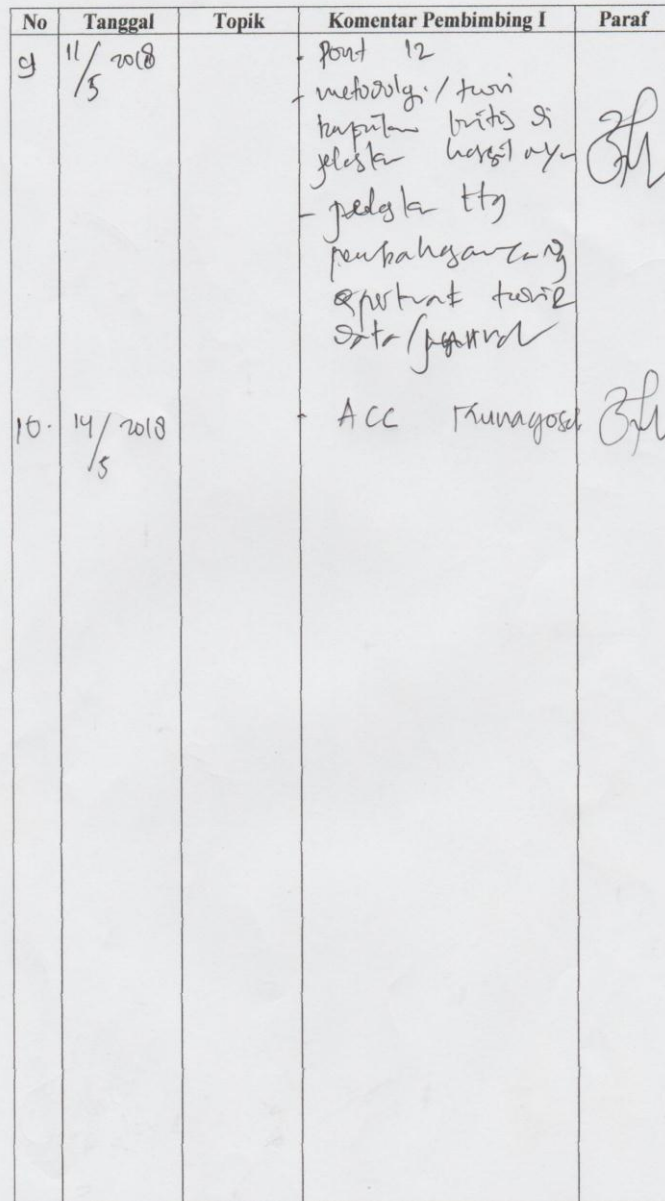 No Tanggal Topik Komentar Pembimbing I Paraf
9 11/5 2018 - Font 12
- metodologi / teori
kritis di
jelaskan hasil nya
- jelaskan ttg
pembahasan yang
diperkuat teori 2
data /
10. 14/5 2018 - ACC Munaqosah